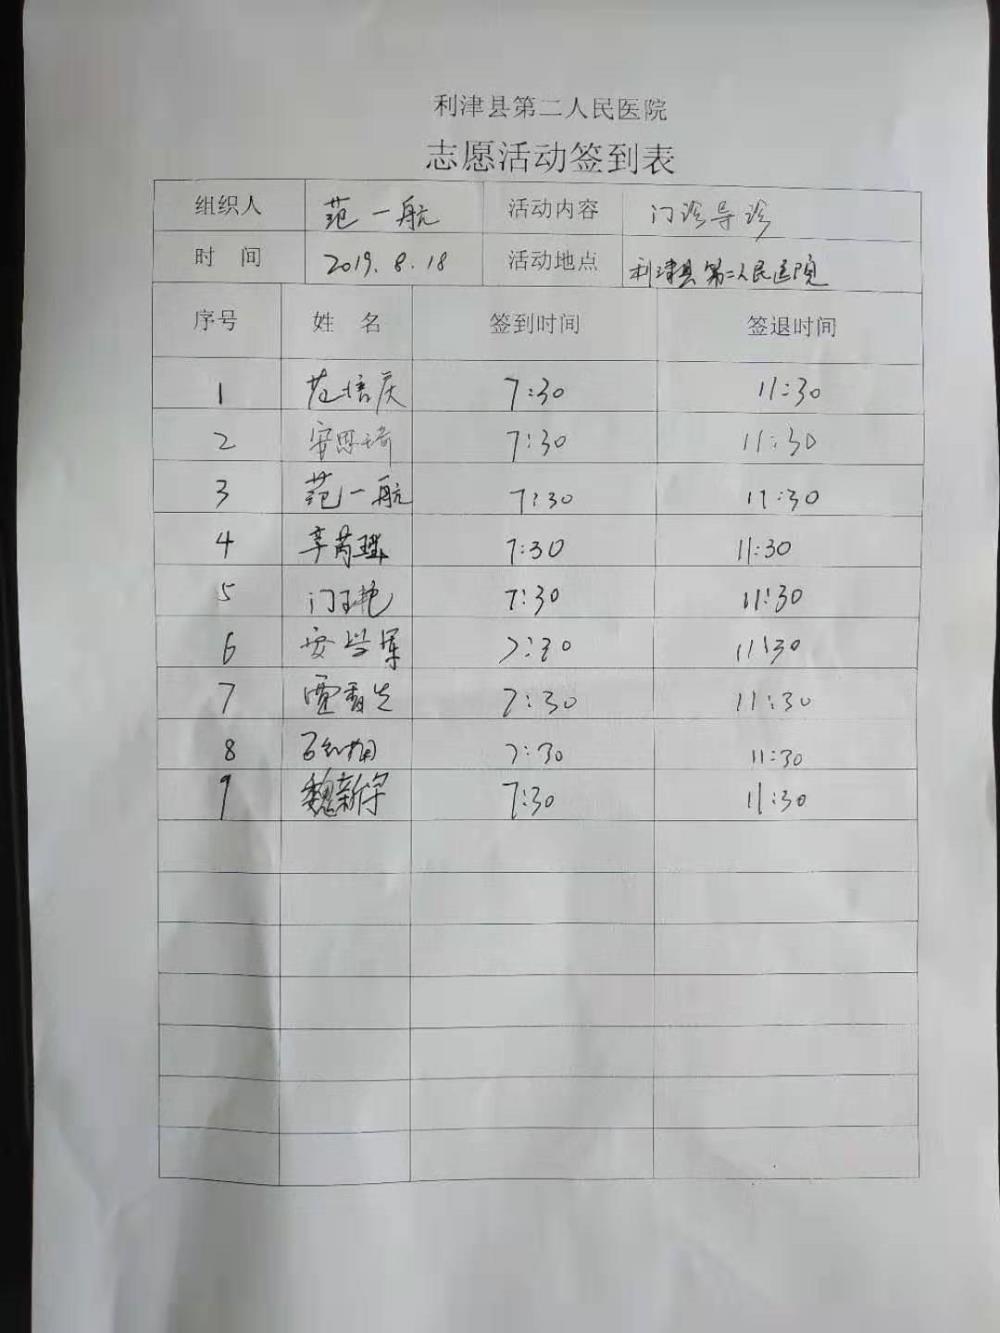 利津县第二人民医院
志愿活动签到表
组织人 范一航 活动内容 门诊导诊
时 间 2019.8.18 活动地点 利津县第二人民医院
序号 姓 名 签到时间 签退时间
1 范培庆 7:30 11:30
2 安思琦 7:30 11:30
3 范一航 7:30 11:30
4 李芮 7:30 11:30
5 门艳 7:30 11:30
6 安 军 7:30 11:30
7 7:30 11:30
8 7:30 11:30
9 魏新宇 7:30 11:30